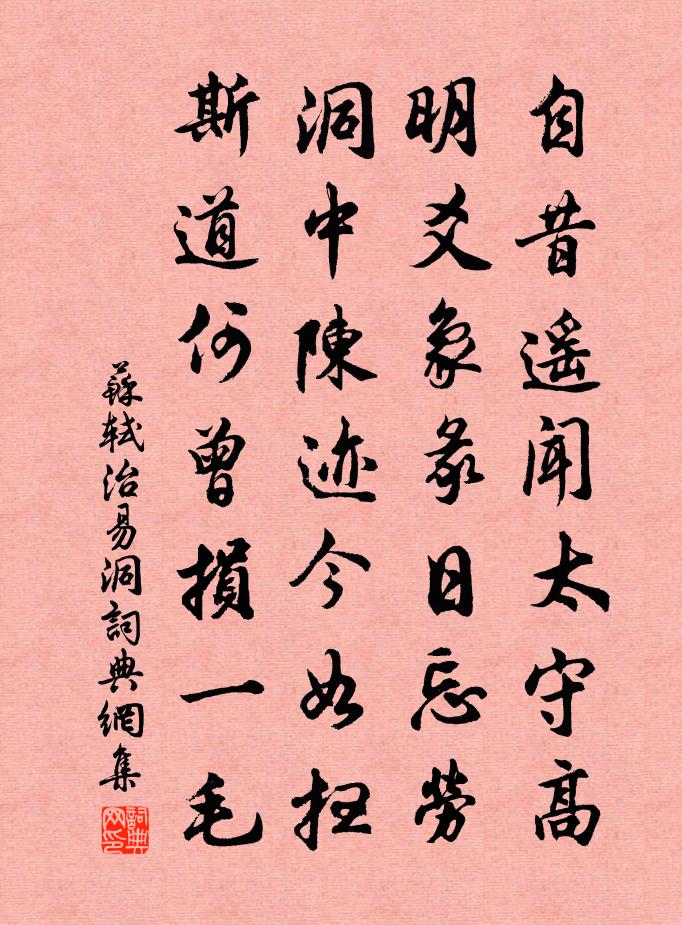 自昔遥闻太守高
明爻象彖日忘勞
洞中陳迹今如在
斯道何曾損一毛
蘇軾治易洞詞典網集
詞典网印